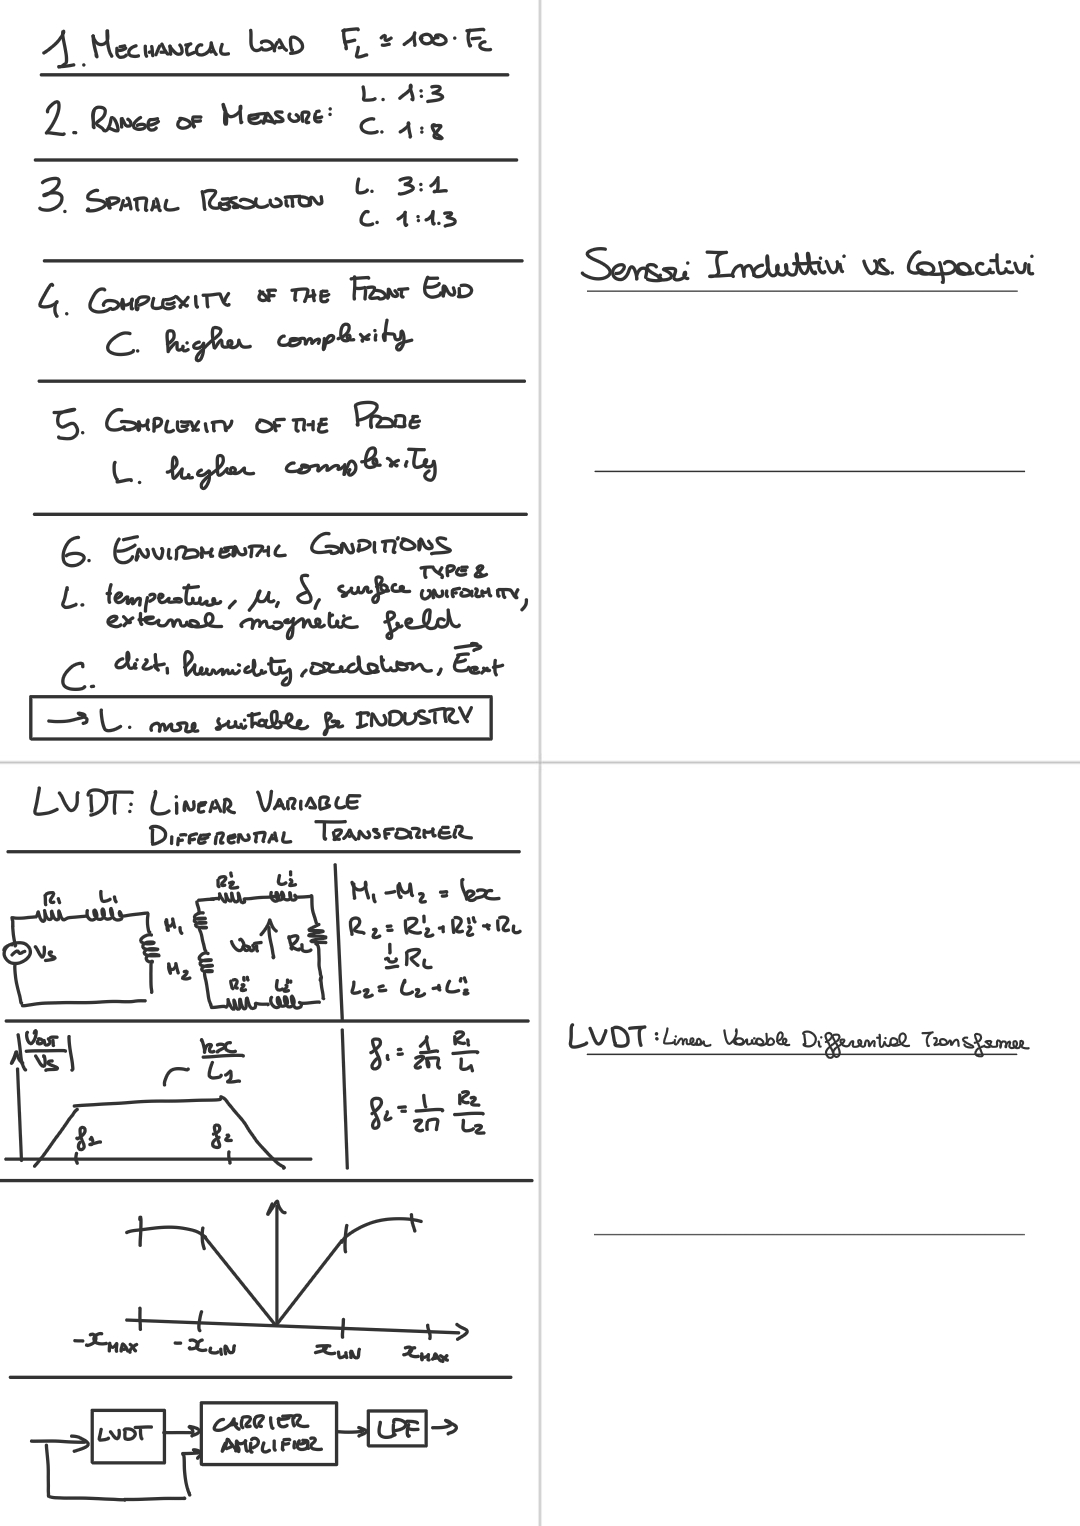 1. MECHANICAL LOAD F_L ≃ 100 · F_C
2. RANGE OF MEASURE:
L. 1:3
C. 1:8
3. SPATIAL RESOLUTION
L. 3:1
C. 1:1.3
4. COMPLEXITY OF THE FRONT END
C. higher complexity
5. COMPLEXITY OF THE PROBE
L. higher complexity
6. ENVIROMENTAL CONDITIONS
L. temperature, μ, δ, surface TYPE & UNIFORMITY,
external magnetic field
C. dist, humidity, oxidation, E⃗ext
→ L. more suitable for INDUSTRY
Sensori Induttivi vs. Capacitivi
LVDT: LINEAR VARIABLE
DIFFERENTIAL TRANSFORMER
R₁ L₁
V_S
M₁
M₂
R₂' L₂'
Vout R_L
R₂'' L₂''
M₁ - M₂ = kx
R₂ = R₂' + R₂'' + R_L
≃ R_L
L₂ = L₂' + L₂''
|Vout/V_S|
kx/L₁
f₁ f₂
f₁ = 1/2π R₁/L₁
f₂ = 1/2π R₂/L₂
-x_MAX -x_LIN x_LIN x_MAX
LVDT
CARRIER
AMPLIFIER
LPF
LVDT: Linear Variable Differential Transformer